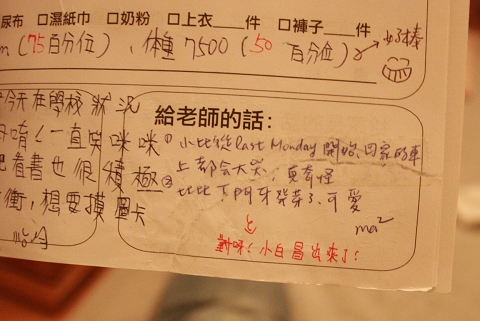 尿布 □濕紙巾 □奶粉 □上衣___件 □褲子___件
m (75百分位)、体重7500 (50 百分位) 好棒
今天在學校狀況
唷!一直笑咪咪
看書也很積極
衝,想要摸圖卡
給老師的話:
①小比從last Monday 開始、回家的車
上都会大哭,真奇怪
②比比下門牙發芽了、可愛
ma²
對呀!小白冒出來了!